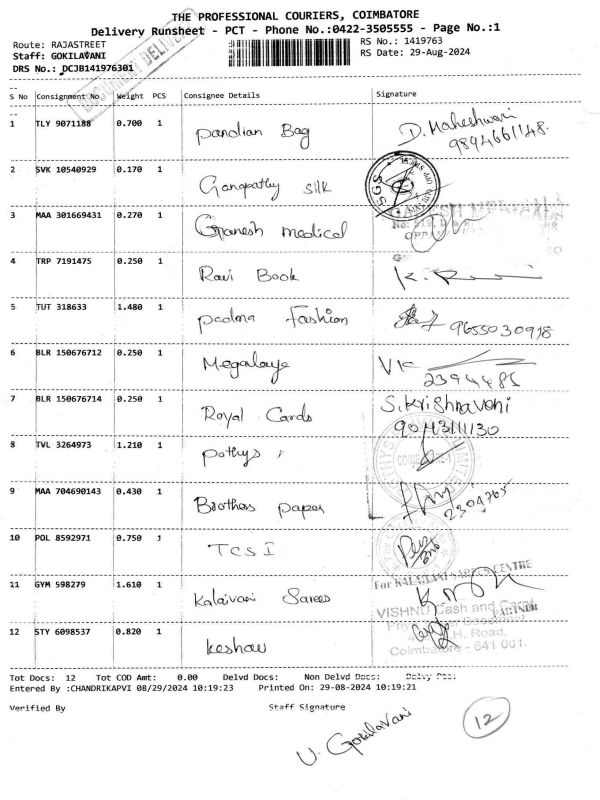 THE PROFESSIONAL COURIERS, COIMBATORE
Delivery Runsheet - PCT - Phone No.:0422-3505555 - Page No.:1
Route: RAJASTREET
RS No.: 1419763
Staff: GOKILAVANI
RS Date: 29-Aug-2024
DRS No.: DCJB141976301
S No Consignment No Weight PCS Consignee Details Signature
1 TLY 9071188 0.700 1 Pandian Bag D. Maheshwari
9894661148.
2 SVK 10540929 0.170 1 Ganapathy silk
SGS
3 MAA 301669431 0.270 1 Ganesh medical
4 TRP 7191475 0.250 1 Ravi Book
5 TUT 318633 1.480 1 padma Fashion 9655030918
6 BLR 150676712 0.250 1 Megalaye VK
2394486
7 BLR 150676714 0.250 1 Royal Cards S.Krishnavani
9043111130
8 TVL 3264973 1.210 1 pothys
9 MAA 704690143 0.430 1 Brothers paper
2309765
10 POL 8592971 0.750 1 TCS I
11 GYM 598279 1.610 1 Kalaivani Sarees
For KALAIVANI SAREES CENTRE
PARTNER
12 STY 6098537 0.820 1 Keshav
VISHNU Cash and Carry
H. Road,
Coimbatore - 641 001.
Tot Docs: 12 Tot COD Amt: 0.00 Delvd Docs: Non Delvd Docs: Delvy Pts:
Entered By :CHANDRIKAPVI 08/29/2024 10:19:23 Printed On: 29-08-2024 10:19:21
Verified By Staff Signature
12
V. Gokilavani